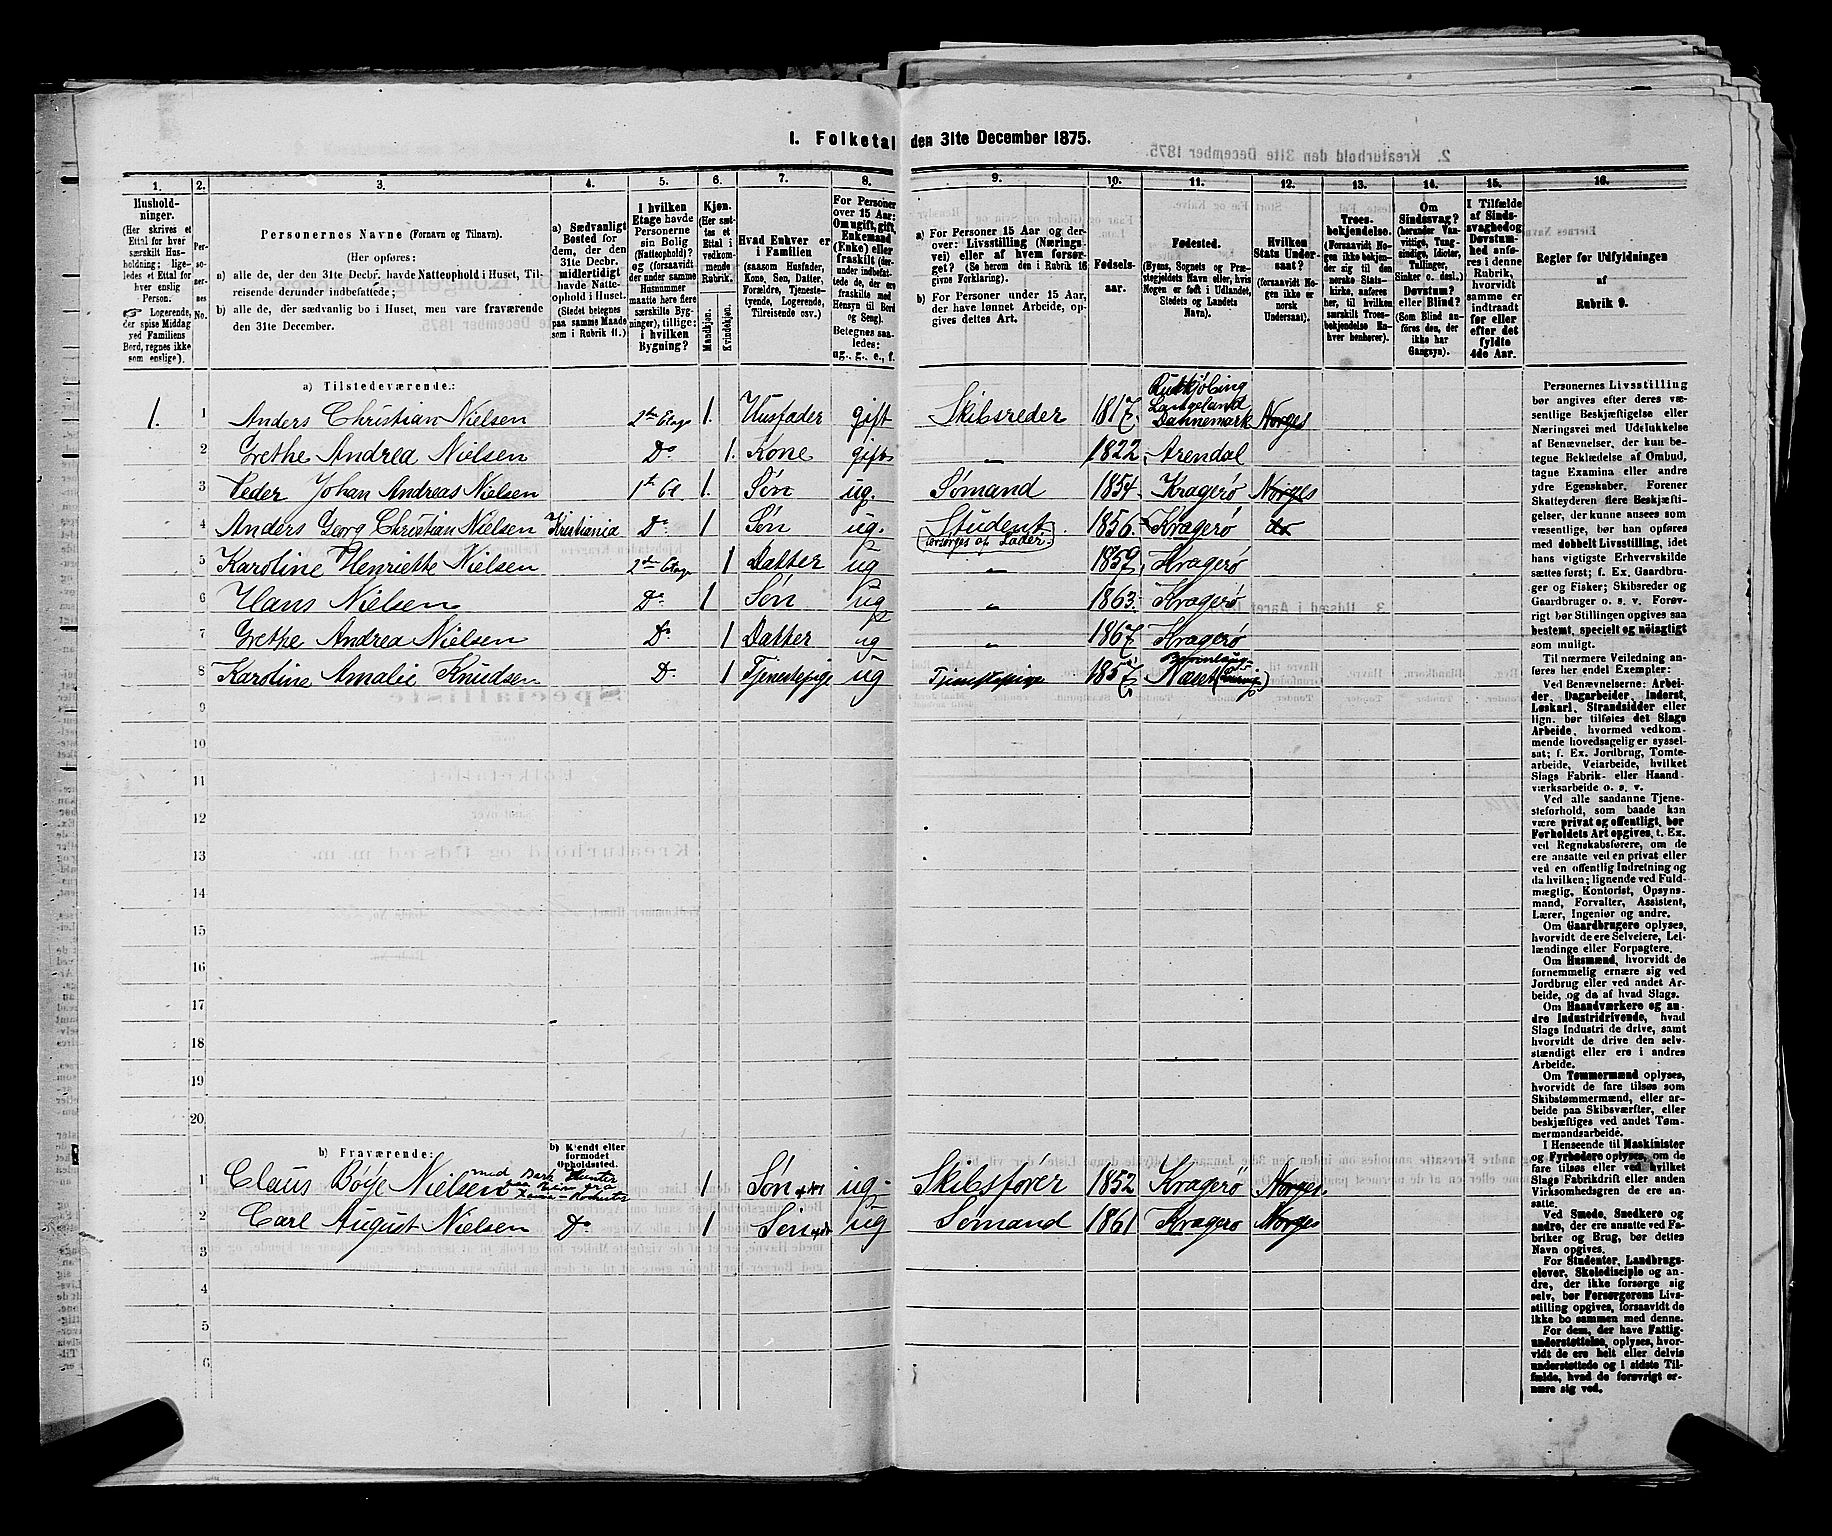 1. Folketal den 31te December 1875.
2. Kreaturhold den 31te December 1875.
1. 2. 3. 4. 5. 6. 7. 8. 9. 10. 11. 12. 13. 14. 15. 16.
Hushold-
ninger.
(Her skrives et
Ettal for hver
særskilt Hus-
holdning; lige-
ledes et Ettal for
hver enslig
Person.
Logerende,
der spise Middag
ved Familiens
Bord, regnes ikke
som enslige).
Per-
so-
ner-
nes
No.
Personernes Navne (Fornavn og Tilnavn).
(Her opføres:
a) alle de, der den 31te Decbr. havde Natteophold i Huset, Til-
reisende derunder indbefattede;
b) alle de, der sædvanlig bo i Huset, men vare fraværende
den 31te December.
a) Sædvanligt
Bosted for
dem, der den
31te Decbr.
midlertidigt
havde Natte-
ophold i Huset.
(Stedet betegnes
paa samme Maade
som i Rubrik 11.)
I hvilken
Etage havde
Personerne
sin Bolig
(Natteophold)?
og (forsaavidt
der under samme
Husnummer
maatte høre flere
særskilte Byg-
ninger), tillige:
i hvilken
Bygning?
Kjøn.
(Her sæt-
tes et
Ettal i
vedkom-
mende
Rubrik.
Mandkjøn.
Kvindekjøn.
Hvad Enhver er
i Familien
(saasom Husfader,
Kone, Søn, Datter,
Forældre, Tjeneste-
tyende, Logerende,
Tilreisende osv.)
For Personer
over 15 Aar:
Om ugift, gift,
Enkemand
(Enke) eller
fraskilt (der-
under indbefat-
tede de, der ere
fraskilte med
Hensyn til Bord
og Seng).
Betegnes saa-
ledes:
ug., g., e., f.
a) For Personer 15 Aar og der-
over: Livsstilling (Nærings-
vei) eller af hvem forsør-
get? (Se herom den i Rubrik 16
givne Forklaring).
b) For Personer under 15 Aar,
der have lønnet Arbeide, op-
gives dettes Art.
Fødsels-
aar.
Fødested.
(Byens, Sognets og Præ-
stegjeldets Navn eller, hvis
Nogen er født i Udlandet,
Stedets og Landets
Navn).
Hvilken
Stats Under-
saat?
(forsaavidt No-
gen ikke er
norsk
Undersaat).
Troes-
bekjendelse.
(Forsaavidt No-
gen ikke bekjen-
der sig til den
norske Stats-
kirke, anføres
her, til hvilken
særskilt Troes-
bekjendelse En-
hver henhører).
Om
Sindssvag?
(herunder Van-
vittige, Tung-
sindige, Idioter,
Tullinger,
Sinker o. desl.)
Døvstum?
eller Blind?
(Som Blind an-
føres den, der
ikke har
Gangsyn).
I Tilfælde
af Sinds-
svaghed og
Døvstum-
hed anfø-
res i denne
Rubrik,
hvorvidt
samme er
indtraadt
før eller
efter det
fyldte
4de Aar.
Regler for Udfyldningen
af
Rubrik 9.
a) Tilstedeværende:
1. 1 Anders Christian Nielsen 2den Etage 1. Husfader gift Skibsreder 1817. Rudkjøbing Langeland Dannemark Norges
2 Grethe Andrea Nielsen Do 1. Kone gift „ 1822 Arendal
3 Peder Johan Andreas Nielsen 1ste Et 1. Søn ug. Sømand 1854. Kragerø Norges
4 Anders Georg Christian Nielsen Kristiania Do 1 Søn ug. Student (forsørges af Fader) 1856. Kragerø do
5 Karoline Henriette Nielsen 2den Etage 1 Datter ug „ 1859. Kragerø
6 Hans Nielsen Do 1 Søn ug „ 1863. Kragerø
7 Grethe Andrea Nielsen Do 1 Datter ug „ 1867 Kragerø
8 Karoline Amalie Knudsen Do 1 Tjenestepige ug Tjenestepige 1857 Næset
9
10
11
12
13
14
15
16
17
18
19
20
b) Fraværende:
b) Kjendt eller
formodet
Opholdssted.
1 Claus Böye Nielsen med Bark Hunter 1 Søn ug. Skibsfører 1852 Kragerø Norges.
2 Carl August Nielsen Do 1 Søn ug Sømand 1861 Kragerø Norges
3
4
5
6
Personernes Livsstilling
bør angives efter deres væ-
sentlige Beskjæftigelse eller
Næringsvei med Udelukkelse
af Benævnelser, der kun be-
tegne Beklædelse af Ombud,
tagne Examina eller andre
ydre Egenskaber. Forener
Skatteyderen flere Beskjæfti-
gelser, der kunne ansees som
væsentlige, bør han opføres
med dobbelt Livsstilling, idet
hans vigtigste Erhvervskilde
sættes først; f. Ex. Gaardbru-
ger og Fisker; Skibsreder og
Gaardbruger o. s. v. Forøv-
rigt bør Stillingen opgives saa
bestemt, specielt og nøiagtigt
som muligt.
Til nærmere Veiledning an-
føres her endel Exempler:
Ved Benævnelserne: Arbei-
der, Dagarbeider, Inderst,
Løskarl, Strandsidder eller
lign. bør tilføies det Slags
Arbeide, hvormed vedkom-
mende hovedsagelig er syssel-
sat; f. Ex. Jordbrug, Tomte-
arbeide, Veiarbeide, hvilket
Slags Fabrik- eller Haand-
værksarbeide o. s. v.
Ved alle saadanne Tjene-
steforhold, som baade kan
være privat og offentligt, bør
Forholdets Art opgives, t. Ex.
ved Regnskabsførere, om de
ere ansatte ved en privat eller
ved en offentlig Indretning og
da hvilken; lignende ved Fuld-
mægtig, Kontorist, Opsyns-
mand, Forvalter, Assistent,
Lærer, Ingeniør og andre.
Om Gaardbrugere oplyses,
hvorvidt de ere Selveiere, Lei-
lændinge eller Forpagtere.
Om Husmænd, hvorvidt de
fornemmelig ernære sig ved
Jordbrug eller ved andet Ar-
beide, og da af hvad Slags.
Om Haandværkere og an-
dre Industridrivende, hvad
Slags Industri de drive, samt
hvorvidt de drive den selv-
stændigt eller ere i andres
Arbeide.
Om Tømmermænd oplyses,
hvorvidt de fare tilsøs som
Skibstømmermænd, eller ar-
beide paa Skibsværfter, eller
beskjæftiges ved andet Tøm-
mermandsarbeide.
I Henseende til Maskinister
og Fyrbødere oplyses, om de
fare tilsøs eller ved hvilket
Slags Fabrikdrift eller anden
Virksomhedsgren de ere an-
satte.
Ved Smede, Snedkere og
andre, der ere ansatte ved Fa-
briker og Brug, bør dettes
Navn opgives.
For Studenter, Landbrugs-
elever, Skoledisciple og an-
dre, der ikke forsørge sig
selv, bør Forsørgerens Livs-
stilling opgives, forsaavidt de
ikke bo sammen med denne.
For dem, der have Fattig-
understøttelse, oplyses, hvor-
vidt de ere helt eller delvis
understøttede og i sidste Til-
fælde, hvad de forøvrigt er-
nære sig ved.